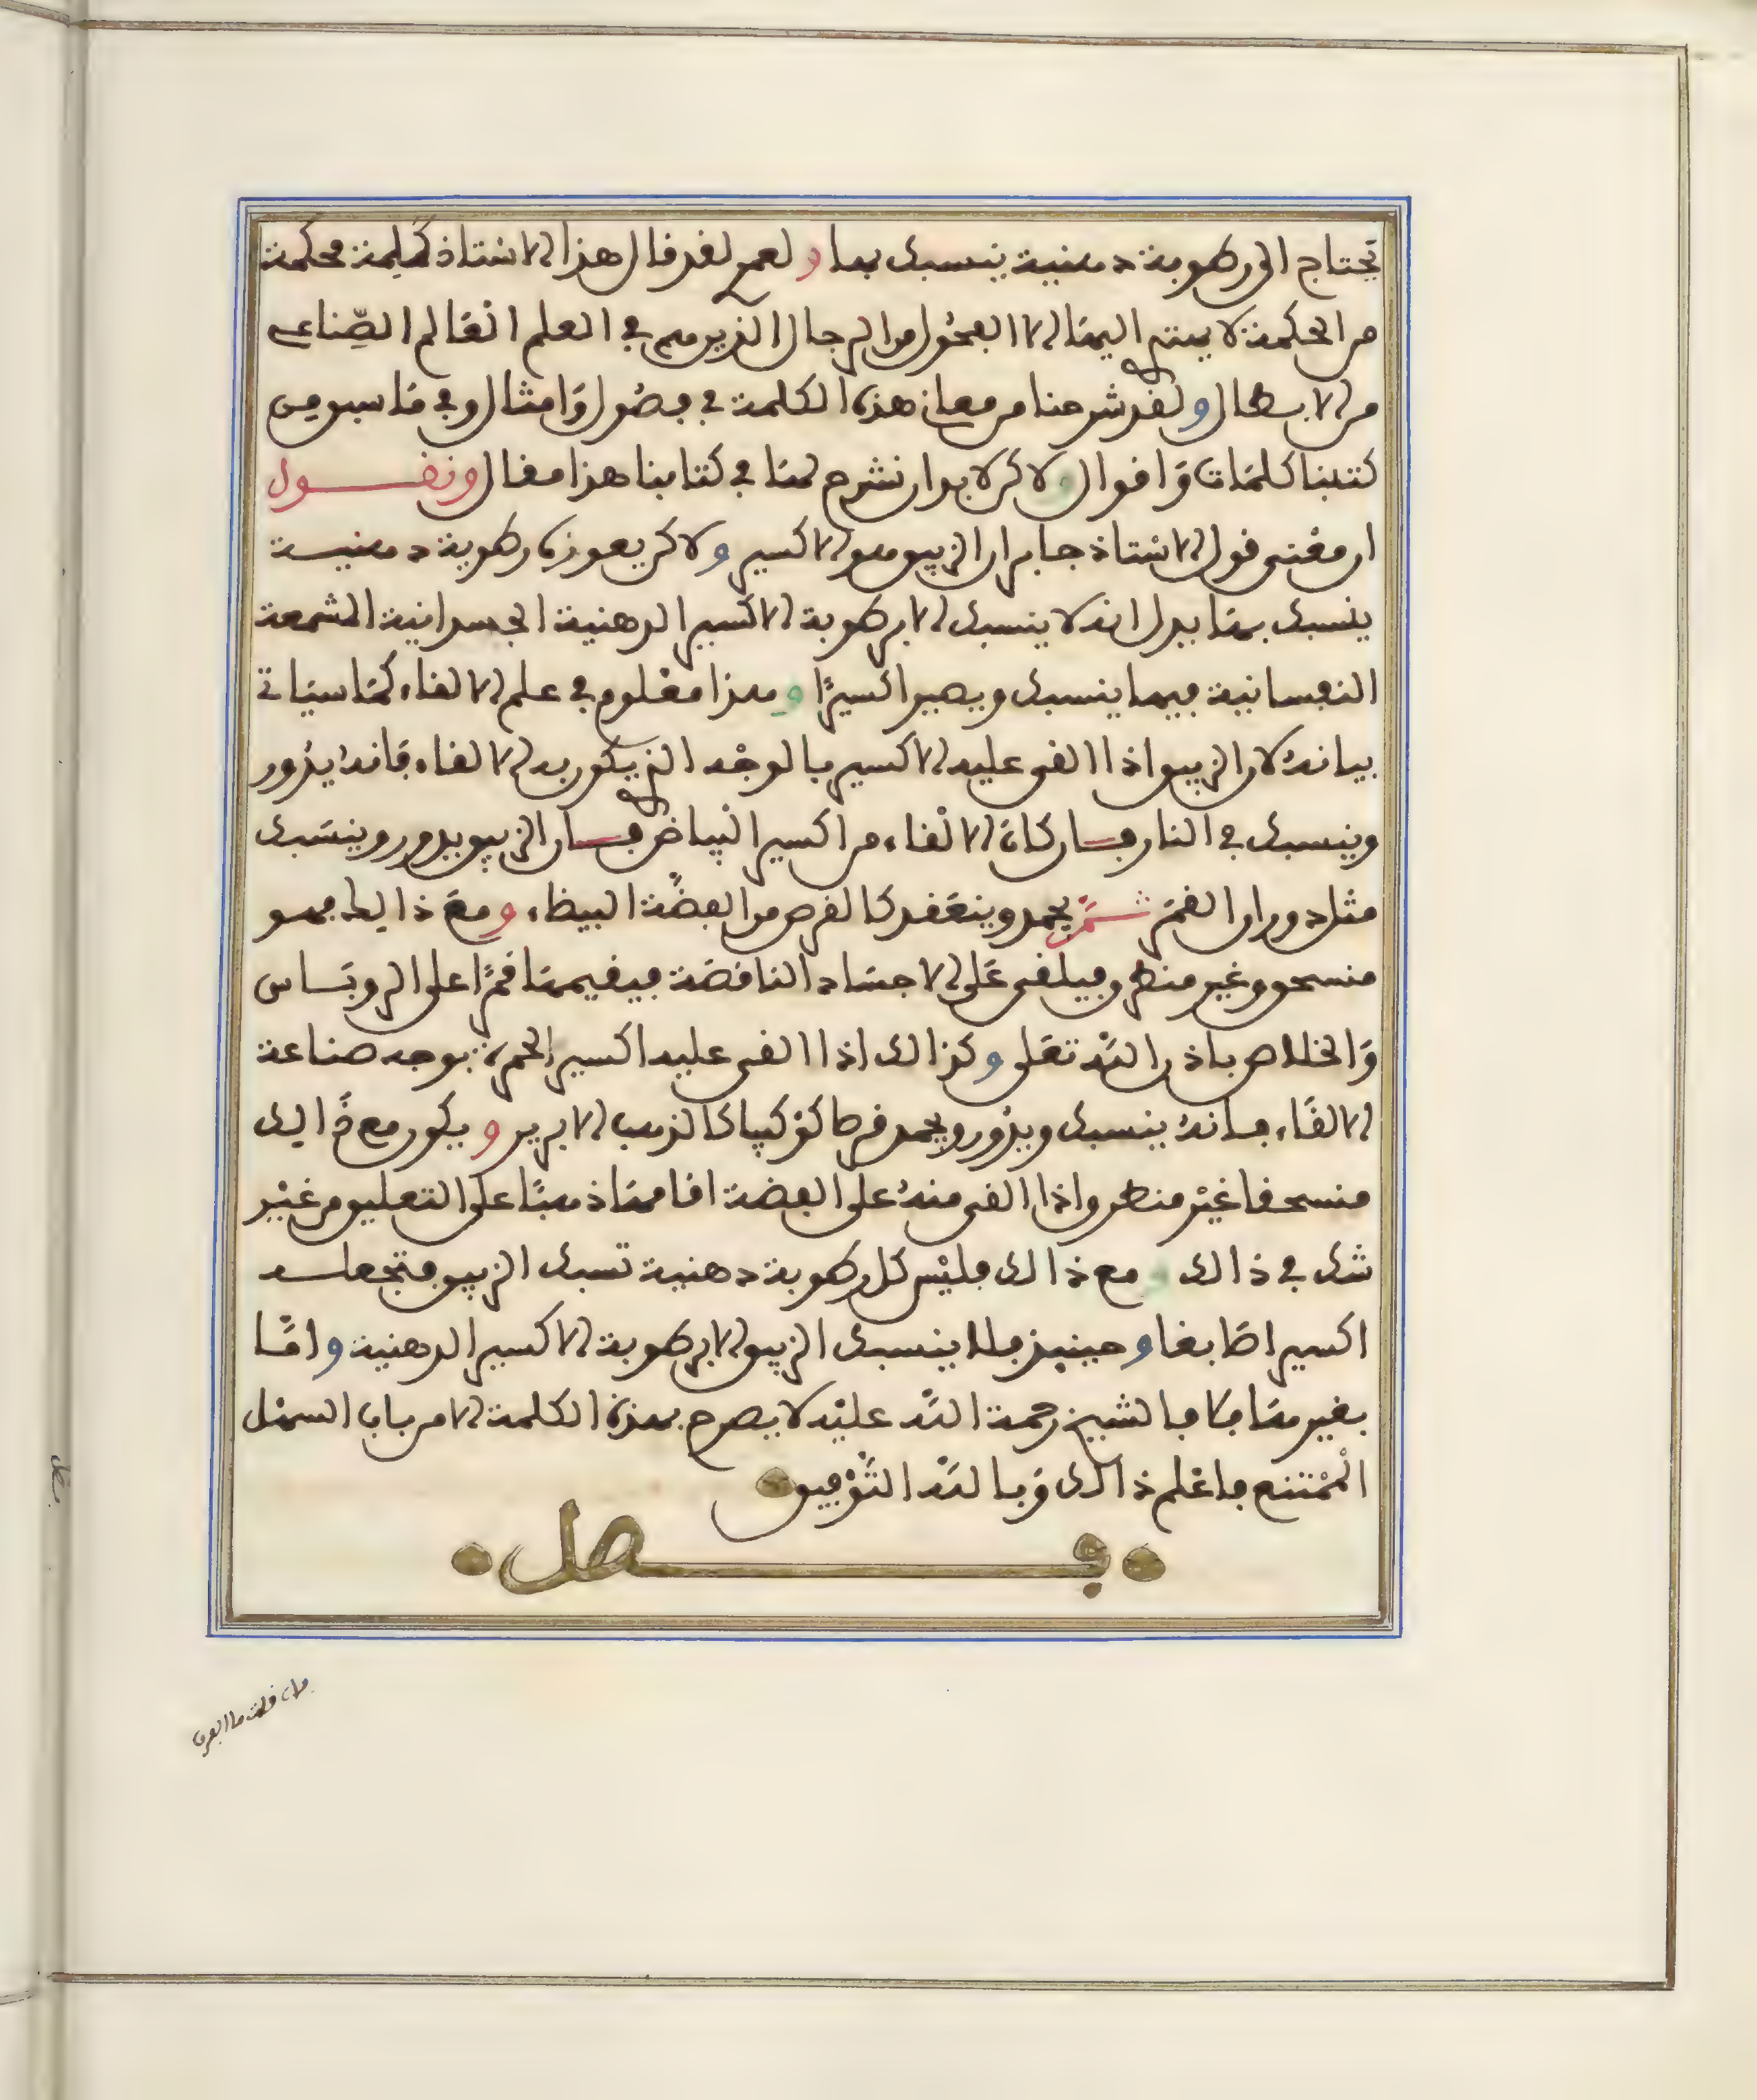 تحتاج الى رطوبة دهنية ينسبك بها ولعمري لقد قال هذا الاستاذ كلمة محكمة
من الحكمة لا يهتدي اليها الا الفحول من الرجال الذين هم في العلم العالم الصناعي
من الابطال ولقد شرحنا من معاني هذه الكلمة في فصول وامثال وفي ما سبق من
كتبنا كلمات واقوال ولاكن لا بد ان نشرح لها في كتابنا هذا مقال ونقول
ان معنى قول الاستاذ جابر ان الزيبق هو الاكسير ولاكن يعوزه رطوبة دهنية
ينسبك بها يدل انه لا ينسبك الا برطوبة الاكسير الدهنية الجسدانية المشمعة
النفسانية فبها ينسبك ويصير اكسيرا وهذا معلوم في علم الالقاء كما سياتي
بيانه لان الزيبق اذا القي عليه الاكسير بالوجه الذي يكون به الالقاء فانه يذور
وينسبك في النار فان كان الالقاء من اكسير البياض فان الزيبق يدور وينسبك
مثل دوران القمر ثم يجمد وينعقد كالقرص من الفضة البيظاء ومع ذالك فهو
منسحق وغير منطرق فيلقى على الاجساد الناقصة فيقيمها قمرا على الروباص
والخلاص باذن الله تعلى وكذالك اذا القي عليه اكسير الحمرة بوجه صناعة
الالقاء فانه ينسبك ويذور ويجمد قرصا كوكبيا كالذهب الابريز ويكون مع ذالك
منسحقا غير منطرق واذا القي منه على الفضة اقامها ذهبا على التعليق من غير
شك في ذالك ومع ذالك فليس كل رطوبة دهنية تسبك الزيبق فتجعله
اكسيرا صابغا وحينيذ فلا ينسبك الزيبق الا برطوبة الاكسير الدهنية واما
بغيرها فلا فالشيخ رحمة الله عليه لا يصرح بهذه الكلمة الا من باب السهل
الممتنع فاعلم ذالك وبالله التوفيق
فصل
فان قلت ما الفرق